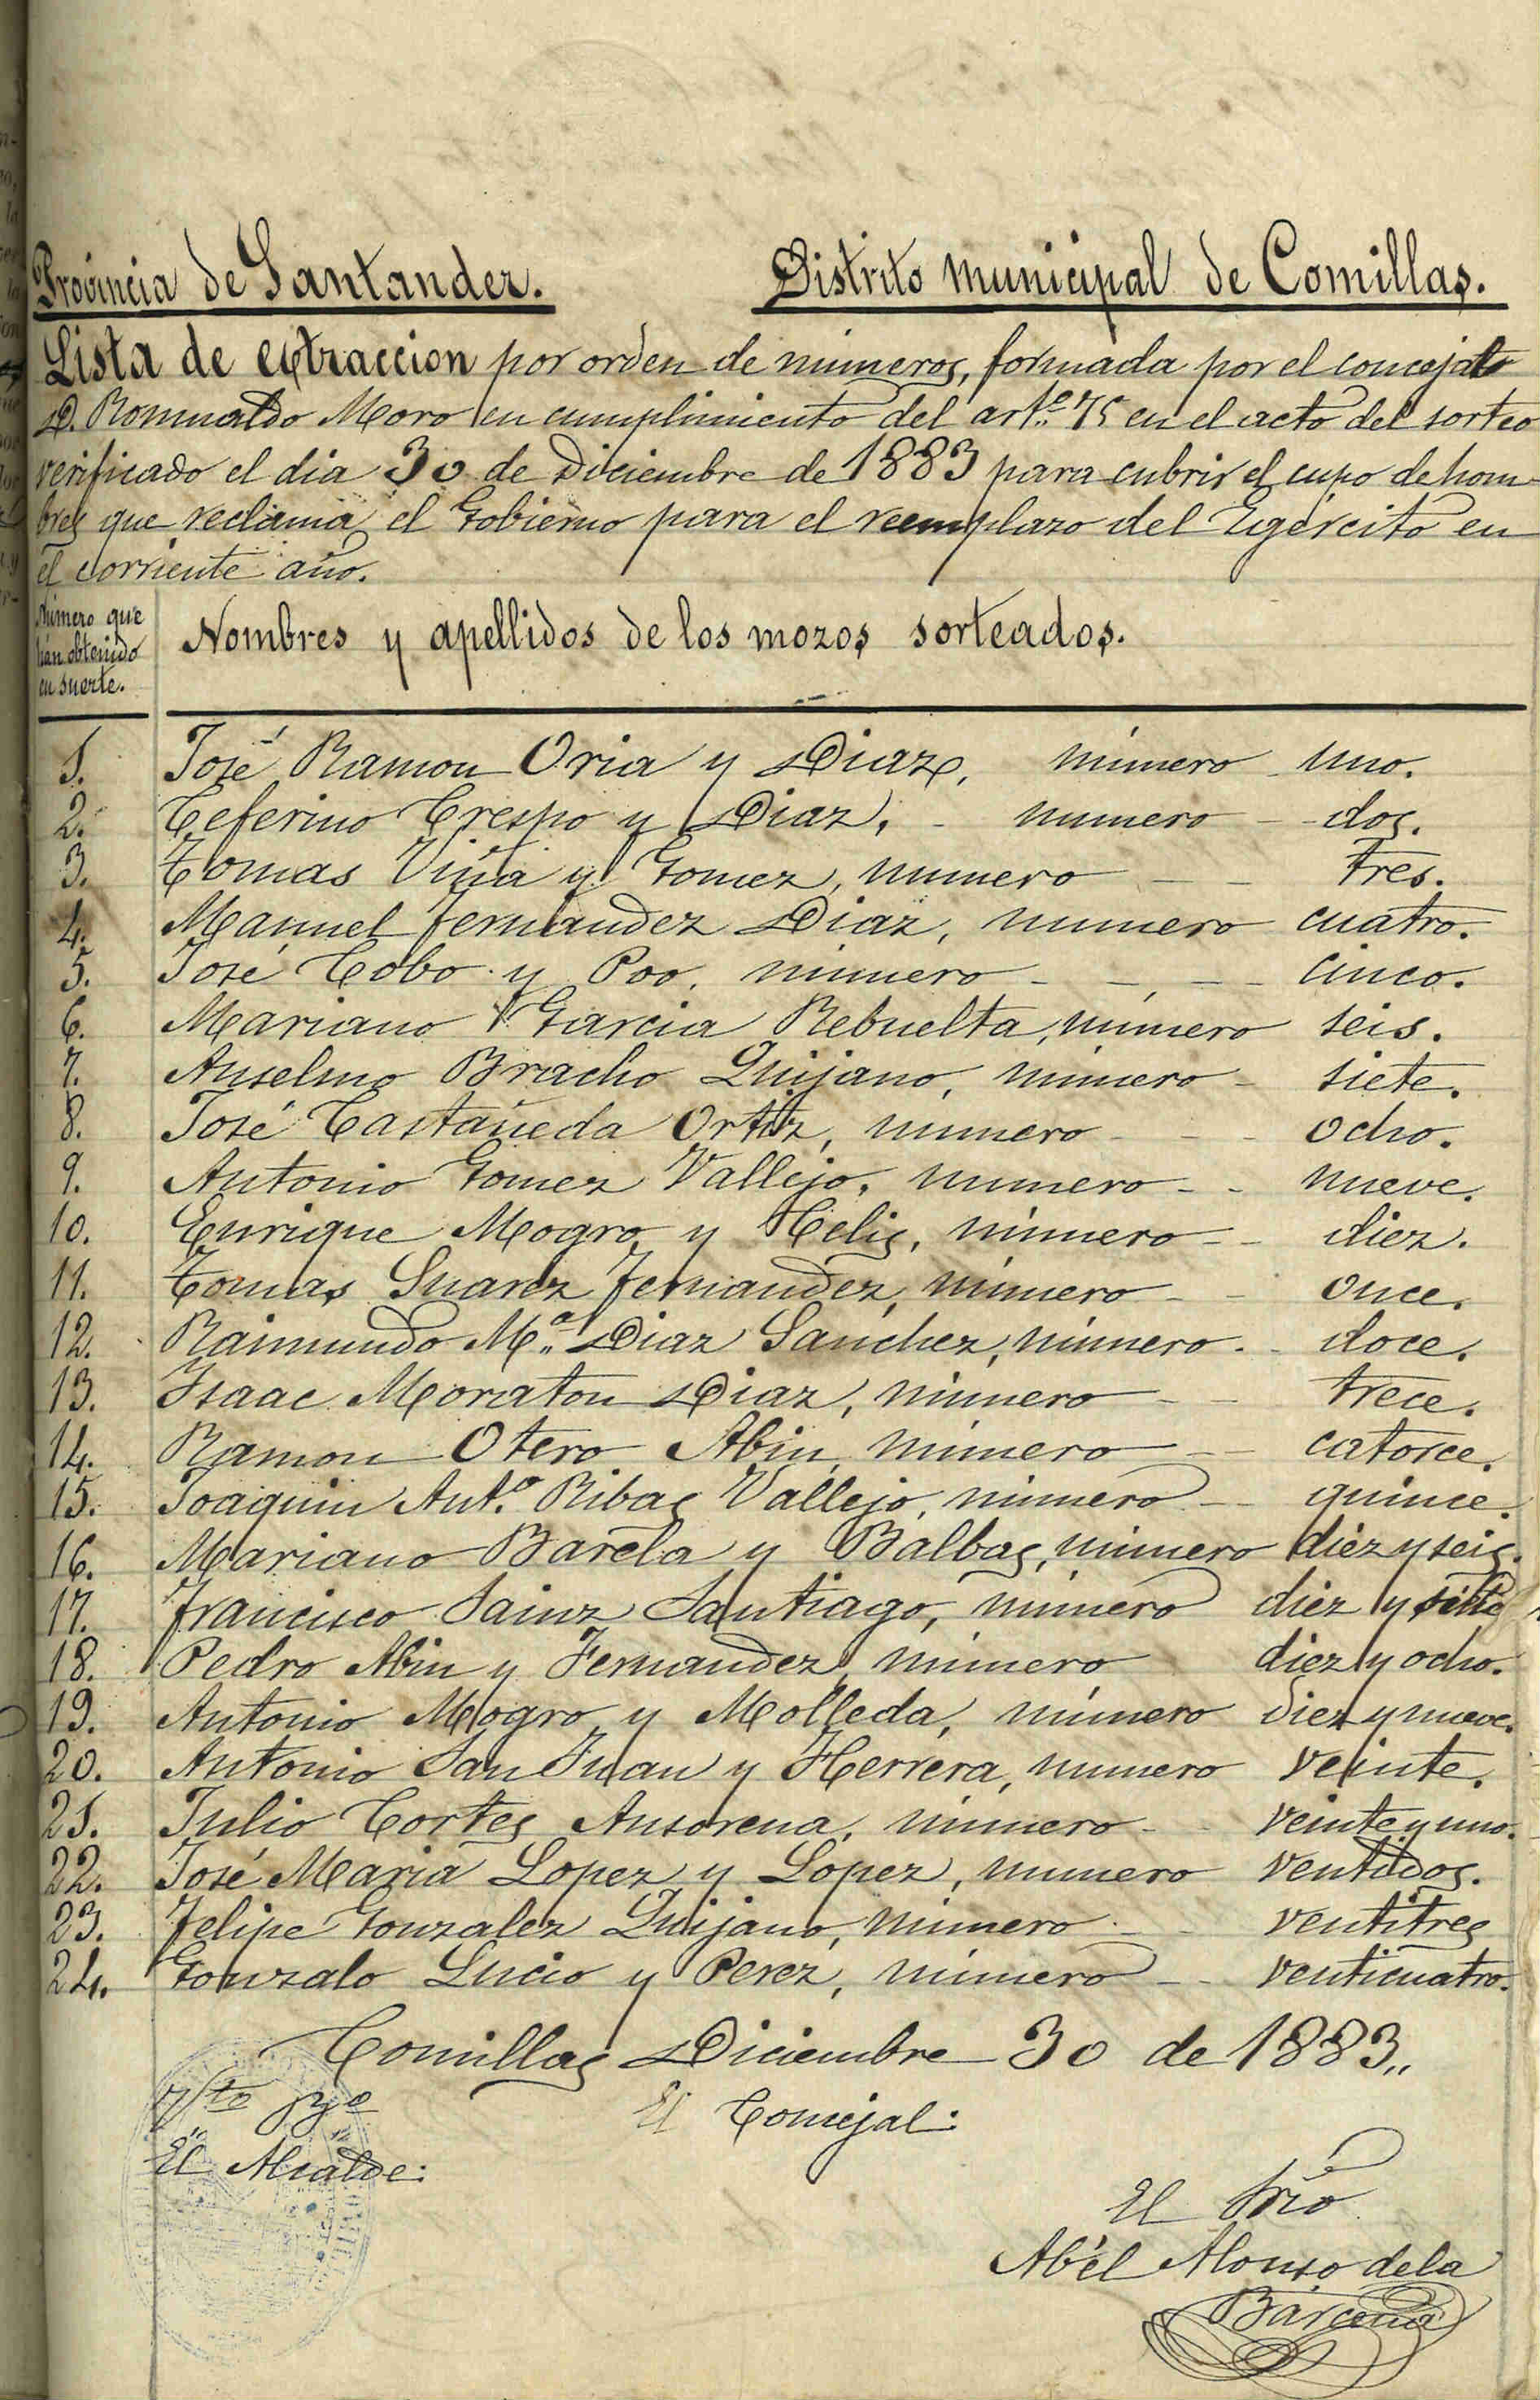 Provincia de Santander. Distrito municipal de Comillas.
Lista de extraccion por orden de números, formada por el concejal
D. Romualdo Moro en cumplimiento del art.º 75 en el acto del sorteo
verificado el dia 30 de Diciembre de 1883 para cubrir el cupo de hom-
bres que reclama el Gobierno para el reemplazo del Egército en
el corriente año.
Número que
han obtenido
en suerte.
Nombres y apellidos de los mozos sorteados.
1. José Ramon Oria y Diaz, número uno.
2. Ceferino Crespo y Diaz, - numero - dos.
3. Tomas Viña y Gomez, numero - - tres.
4. Manuel Fernandez Diaz, numero cuatro.
5. José Cobo y Poo, número - - - - cinco.
6. Mariano Garcia Rebuelta, número seis.
7. Anselmo Bracho Quijano, número - siete.
8. José Castañeda Ortiz, numero - - - ocho.
9. Antonio Gomez Vallejo, numero - - nueve.
10. Enrique Mogro y Helis, número - - diez.
11. Tomas Suarez Fernandez, número - - once.
12. Raimundo M.ª Diaz Sanchez, número - - doce.
13. Isaac Moraton Diaz, número - - trece.
14. Ramon Otero Abin, número - catorce.
15. Joaquin Ant.º Ribas Vallejo, número - - quince.
16. Mariano Barela y Balbas, número diez y seis.
17. Francisco Sainz Santiago, número diez y siete
18. Pedro Abin y Fernandez, número diez y ocho.
19. Antonio Mogro y Molleda, número diez y nueve.
20. Antonio San Juan y Herrera, numero veinte.
21. Julio Cortes Ansorena, número - - veinte y uno.
22. José Maria Lopez y Lopez, numero ventidos.
23. Felipe Gonzalez Quijano, número - - ventitres
24. Gonzalo Lucio y Perez, número - - venticuatro.
Comillas Diciembre 30 de 1883,,
Vsto Bno
El Concejal:
El Alcalde:
El Srio
Abél Alonso de la
Bárcena